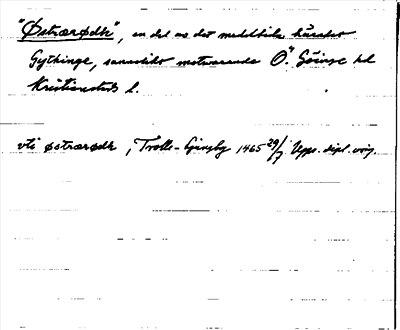 "Østrærødh", en del av det medeltida häradet
Gythinge, sannolikt motsvarande Ö. Göinge hd
Kristianstads l.
vti østrærødh, Trolle-Ljungby 1465 29/7 Upps. dipl. orig.